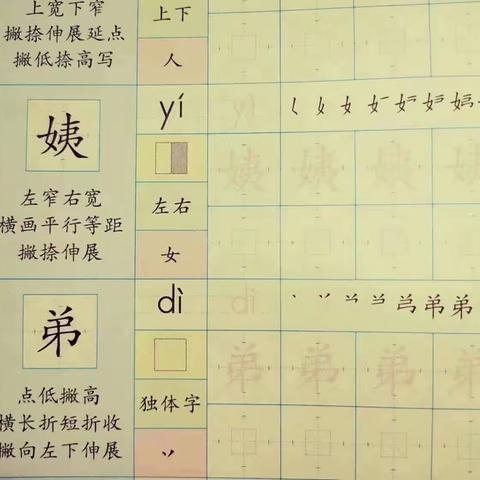 上宽下窄
撇捺伸展延点
撇低捺高写
上下
人
姨
左窄右宽
横画平行等距
撇捺伸展
yí
左右
女
yí
姨 姨 姨 姨
弟
点低撇高
横长折短折收
撇向左下伸展
dì
独体字
丷
dì
弟 弟 弟 弟